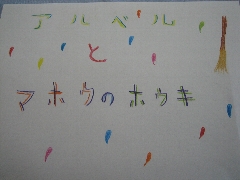 アルベル
と
マホウのホウキ